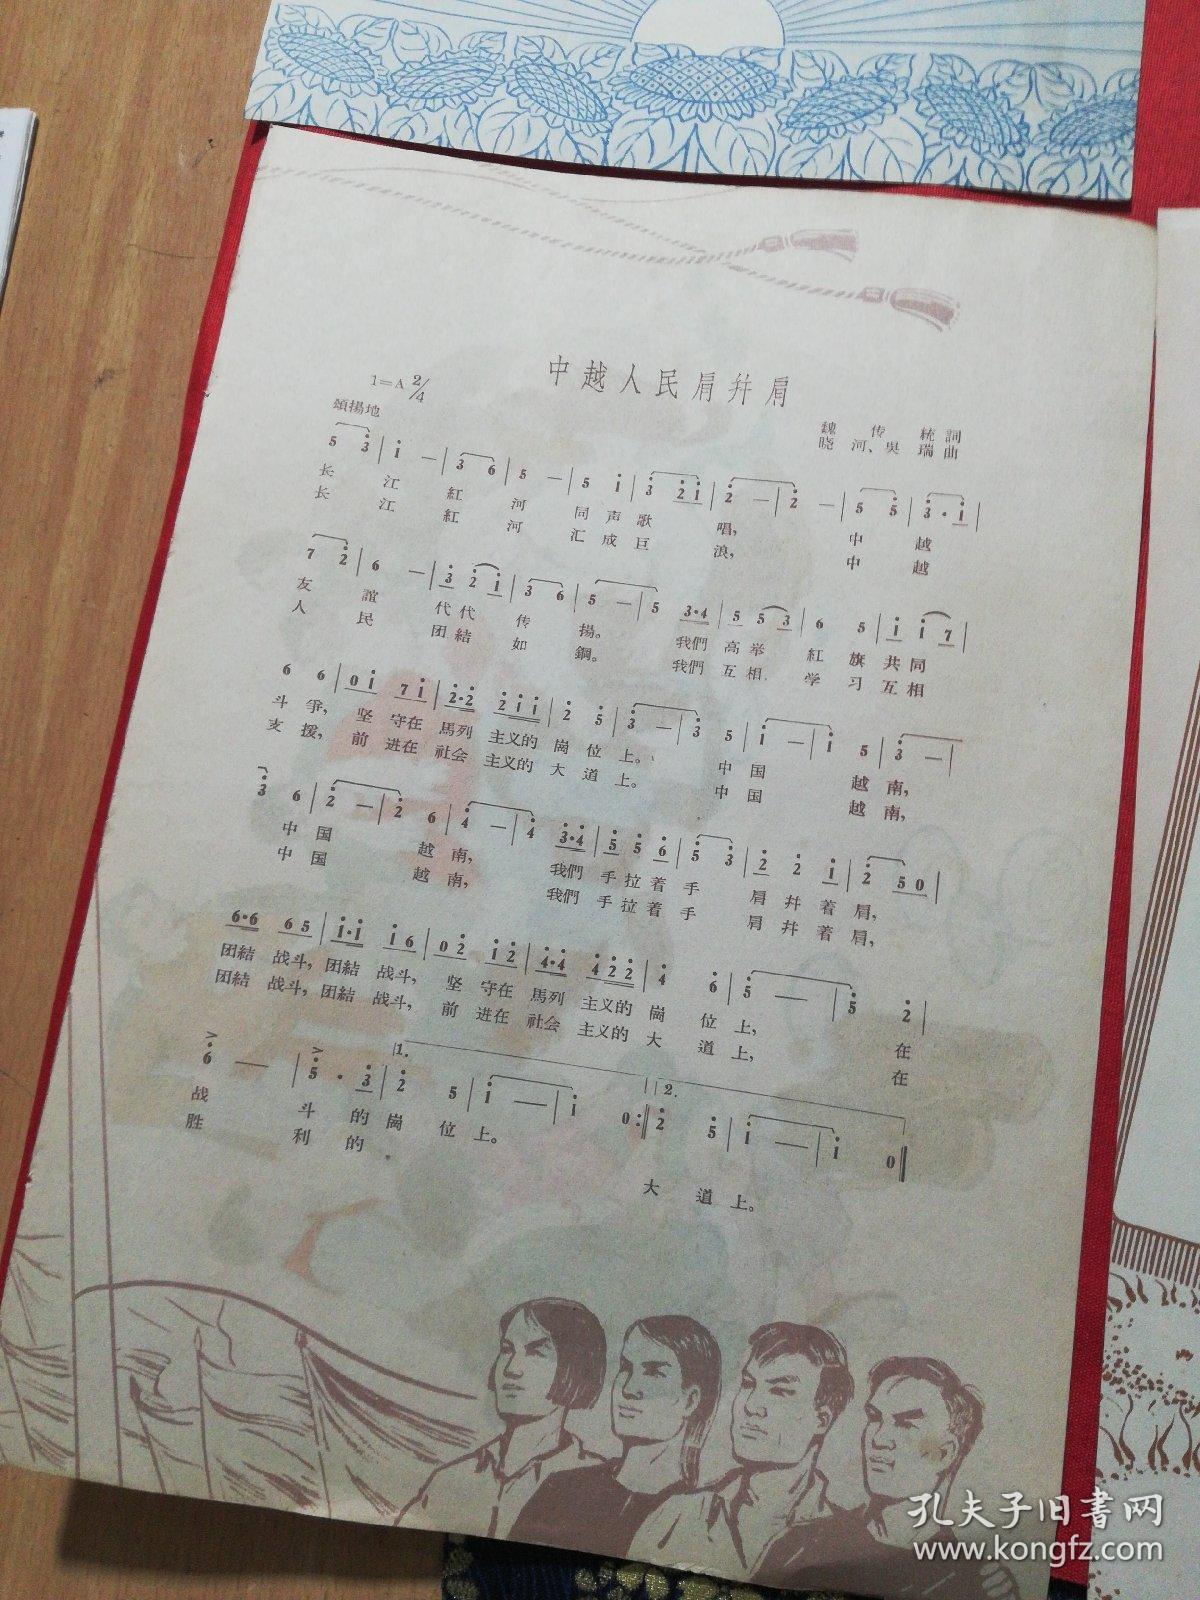 中越人民肩幷肩
1=A 2/4
頌揚地
魏传統詞
晓河、吳瑞曲
5 3 | i — | 3 6 | 5 — | 5 i | 3 2 i | 2 — | 2 — | 5 5 | 3 · i |
长江紅河同声歌唱，中越
长江紅河汇成巨浪，中越
7 2 | 6 — | 3 2 i | 3 6 | 5 — | 5 3·4 | 5 5 3 | 6 5 | i i 7 |
友誼代代传揚。我們高举紅旗共同
人民团結如鋼。我們互相学习互相
6 6 | 0 i 7 i | 2·2 2 i i | 2 5 | 3 — | 3 5 | i — | i 5 | 3 — |
斗爭，坚守在馬列主义的崗位上。中国越南，
支援，前进在社会主义的大道上。中国越南，
3 6 | 2 — | 2 6 | 4 — | 4 3·4 | 5 5 6 | 5 3 | 2 2 i | 2 5 0 |
中国越南，我們手拉着手肩幷着肩，
中国越南，我們手拉着手肩幷着肩，
6·6 6 5 | i·i i 6 | 0 2 i 2 | 4·4 4 2 2 | 4 6 | 5 — | 5 2 |
团結战斗，团結战斗，坚守在馬列主义的崗位上，在
团結战斗，团結战斗，前进在社会主义的大道上，在
6 — | 5 · 3 | 1. 2 5 | i — | i 0 :‖ 2. 2 5 | i — | i 0 ‖
战斗的崗位上。
胜利的大道上。
孔夫子旧書网
www.kongfz.com